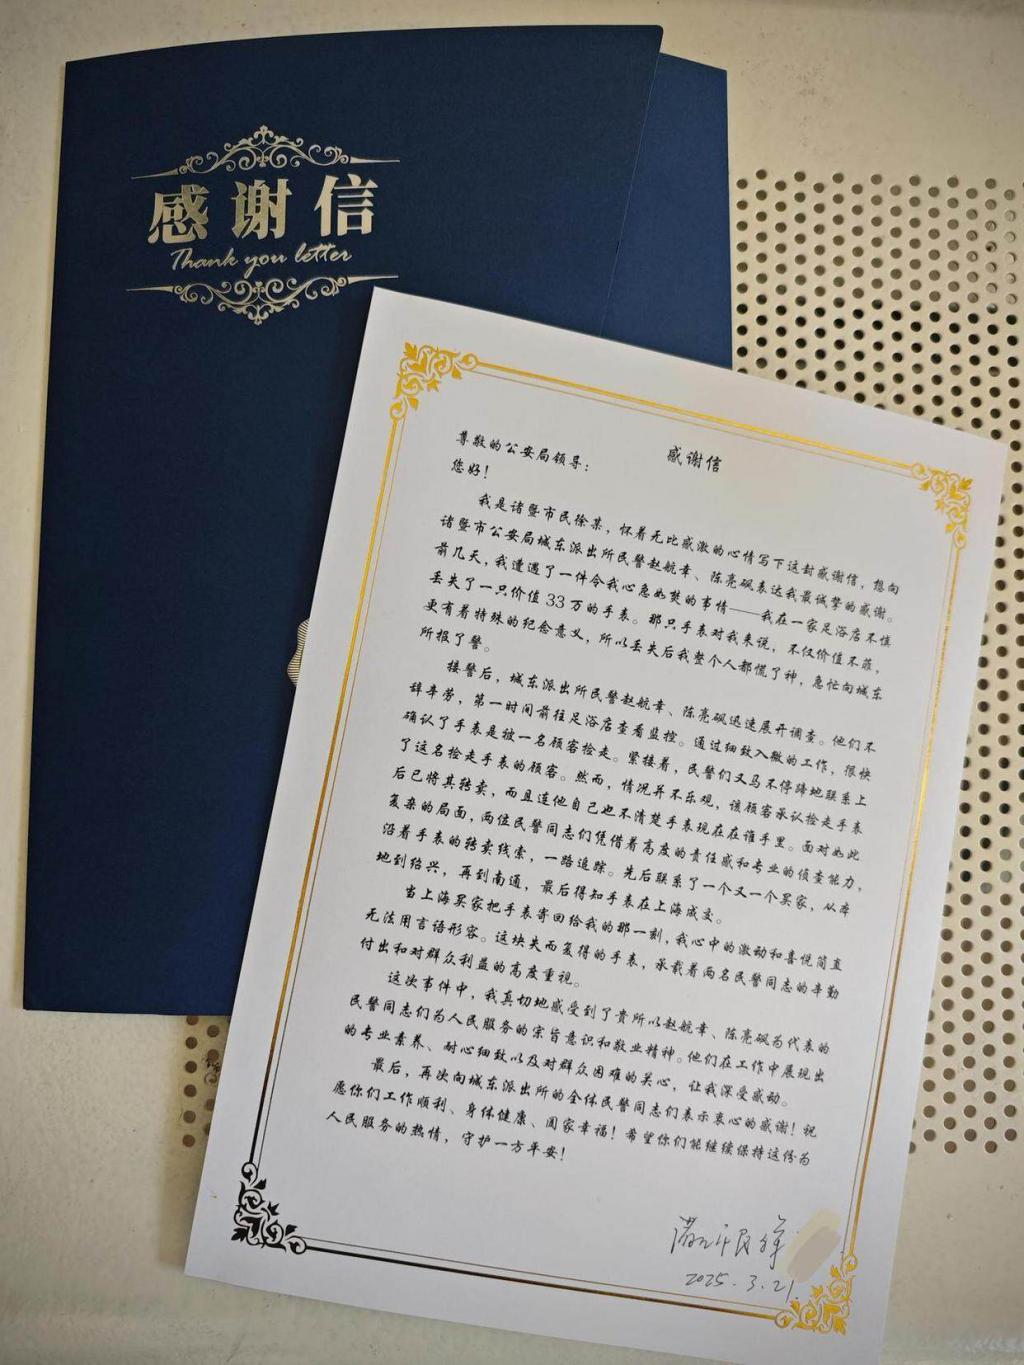 感谢信
Thank you letter
感谢信
尊敬的公安局领导：
您好！
我是诸暨市民徐某，怀着无比感激的心情写下这封感谢信，想向
诸暨市公安局城东派出所民警赵航幸、陈亮飒表达我最诚挚的感谢。
前几天，我遭遇了一件令我心急如焚的事情——我在一家足浴店不慎
丢失了一只价值33万的手表。那只手表对我来说，不仅价值不菲，
更有着特殊的纪念意义，所以丢失后我整个人都慌了神，急忙向城东
所报了警。
接警后，城东派出所民警赵航幸、陈亮飒迅速展开调查。他们不
辞辛劳，第一时间前往足浴店查看监控。通过细致入微的工作，很快
确认了手表是被一名顾客捡走。紧接着，民警们又马不停蹄地联系上
了这名捡走手表的顾客。然而，情况并不乐观，该顾客承认捡走手表
后已将其转卖，而且连他自己也不清楚手表现在在谁手里。面对如此
复杂的局面，两位民警同志们凭借着高度的责任感和专业的侦查能力，
沿着手表的转卖线索，一路追踪。先后联系了一个又一个买家，从本
地到绍兴，再到南通，最后得知手表在上海成交。
当上海买家把手表寄回给我的那一刻，我心中的激动和喜悦简直
无法用言语形容。这块失而复得的手表，承载着两名民警同志的辛勤
付出和对群众利益的高度重视。
这次事件中，我真切地感受到了贵所以赵航幸、陈亮飒为代表的
民警同志们为人民服务的宗旨意识和敬业精神。他们在工作中展现出
的专业素养、耐心细致以及对群众困难的关心，让我深受感动。
最后，再次向城东派出所的全体民警同志们表示衷心的感谢！祝
愿你们工作顺利、身体健康、阖家幸福！希望你们能继续保持这份为
人民服务的热情，守护一方平安！
市民徐
2025.3.21.